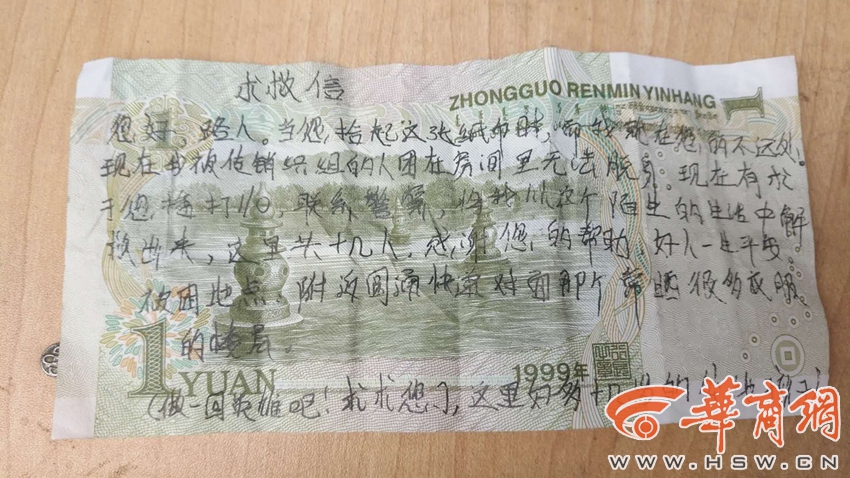 求救信
ZHONGGUO RENMIN YINHANG
1
您好，路人。当您拾起这张纸币时，而我就在您的不远处。
现在我被传销组织的人困在房间里无法脱身。现在有求
于您拨打110，联系警察，将我从这个陌生的生活中解
救出来，这里共十几人，感谢您的帮助，好人一生平安。
被困地点：附近圆通快递对面那个
的楼房。
1 YUAN
1999年
(做一回英雄吧！求求您了)，这里好多
华商网
WWW.HSW.CN